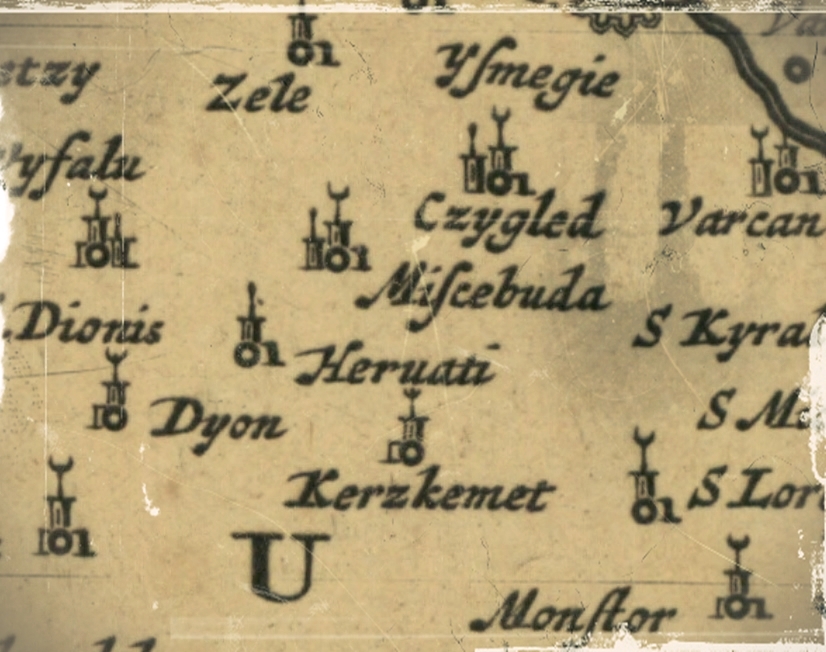 Zele
Yſmegie
Czygled
Varcan
Miſcebuda
Dionis
S Kyra
Heruati
Dyon
S M
Kerzkemet
S Lor
U
Monſtor